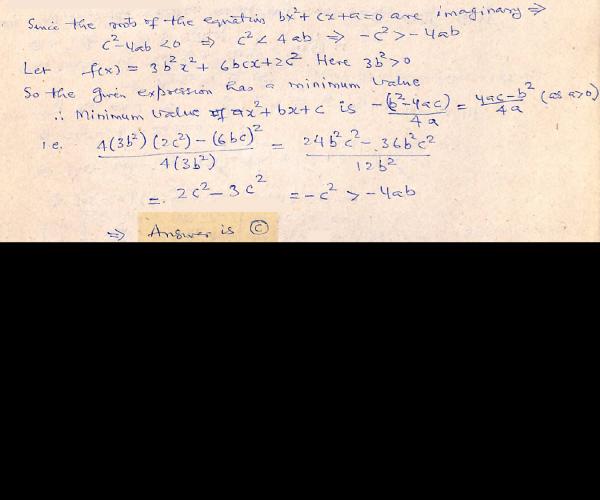 Since the roots of the equation bx²+ cx+a=0 are imaginary ⇒
c²-4ab <0 ⇒ c²< 4ab ⇒ -c²>-4ab
Let f(x) = 3b²x²+ 6bcx+2c². Here 3b²>0
So the given expression has a minimum value
∴ Minimum value of ax²+bx+c is -(b²-4ac)/4a = 4ac-b²/4a (as a>0)
i.e. 4(3b²)(2c²)-(6bc)²/4(3b²) = 24b²c²-36b²c²/12b²
= 2c²-3c² = -c² > -4ab
⇒ Answer is Ⓒ